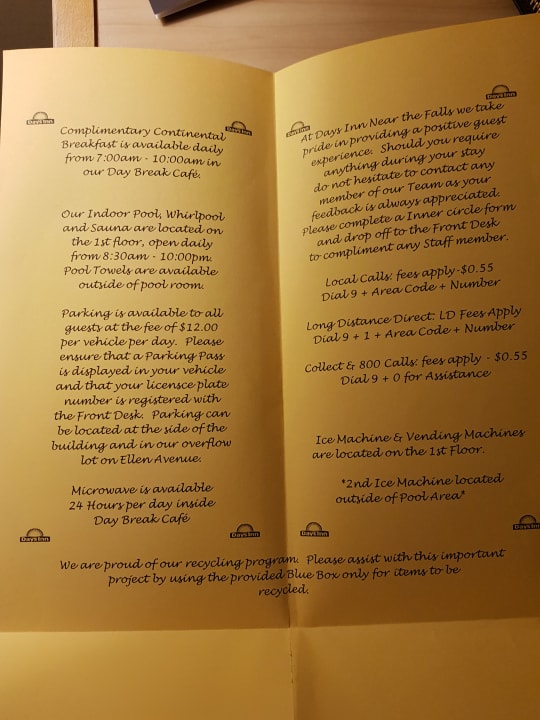 Days Inn
Days Inn
Complimentary Continental
Breakfast is available daily
from 7:00am - 10:00am in
our Day Break Café.
Our Indoor Pool, Whirlpool
and Sauna are located on
the 1st floor, open daily
from 8:30am - 10:00pm.
Pool Towels are available
outside of pool room.
Parking is available to all
guests at the fee of $12.00
per vehicle per day. Please
ensure that a Parking Pass
is displayed in your vehicle
and that your licensce plate
number is registered with
the Front Desk. Parking can
be located at the side of the
building and in our overflow
lot on Ellen Avenue.
Microwave is available
24 Hours per day inside
Day Break Café
Days Inn
Days Inn
Days Inn
Days Inn
At Days Inn Near the Falls we take
pride in providing a positive guest
experience. Should you require
anything during your stay
do not hesitate to contact any
member of our Team as your
feedback is always appreciated.
Please complete a Inner circle form
and drop off to the Front Desk
to compliment any Staff member.
Local Calls: fees apply-$0.55
Dial 9 + Area Code + Number
Long Distance Direct: LD Fees Apply
Dial 9 + 1 + Area Code + Number
Collect & 800 Calls: fees apply - $0.55
Dial 9 + 0 for Assistance
Ice Machine & Vending Machines
are located on the 1st Floor.
*2nd Ice Machine located
outside of Pool Area*
Days Inn
Days Inn
We are proud of our recycling program. Please assist with this important
project by using the provided Blue Box only for items to be
recycled.